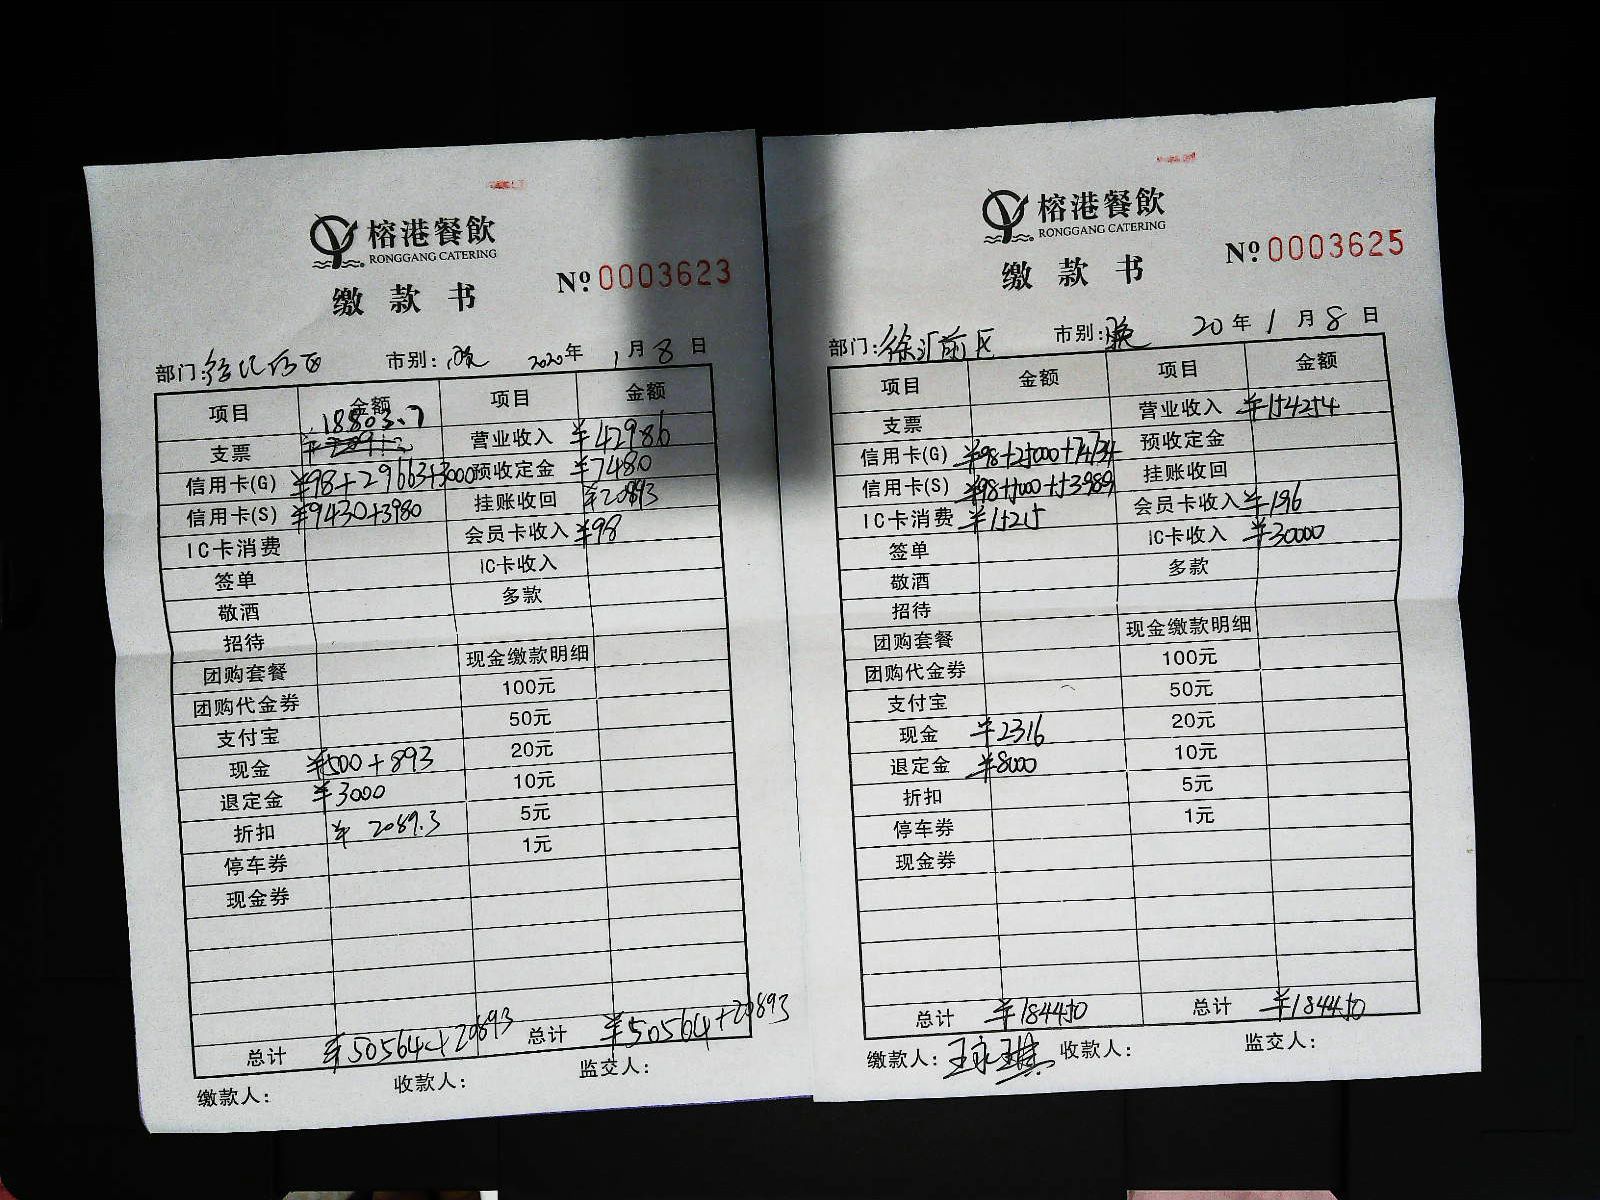 榕港餐飲
RONGGANG CATERING
No 0003623
缴款书
部门: 市别: 晚 2020年 1月 8日
项目 金额 项目 金额
支票 18803.7 营业收入 ¥42986
信用卡(G) ¥98+29663+3000 预收定金 ¥7480
信用卡(S) ¥9430+3980 挂账收回 ¥20893
IC卡消费 会员卡收入 ¥98
签单 IC卡收入
敬酒 多款
招待
团购套餐 现金缴款明细
团购代金券 100元
支付宝 50元
现金 ¥500+893 20元
退定金 ¥3000 10元
折扣 ¥2089.3 5元
停车券 1元
现金券
总计 ¥50564+20893 总计 ¥50564+20893
缴款人: 收款人: 监交人:
榕港餐飲
RONGGANG CATERING
No 0003625
缴款书
部门: 徐汇前区 市别: 晚 20年 1月 8日
项目 金额 项目 金额
支票 营业收入 ¥154254
信用卡(G) ¥98+25000+74734 预收定金
信用卡(S) ¥98+5000+53989 挂账收回
IC卡消费 ¥15215 会员卡收入 ¥196
签单 IC卡收入 ¥30000
敬酒 多款
招待
团购套餐 现金缴款明细
团购代金券 100元
支付宝 50元
现金 ¥2316 20元
退定金 ¥8000 10元
折扣 5元
停车券 1元
现金券
总计 ¥184450 总计 ¥184450
缴款人: 收款人: 监交人: